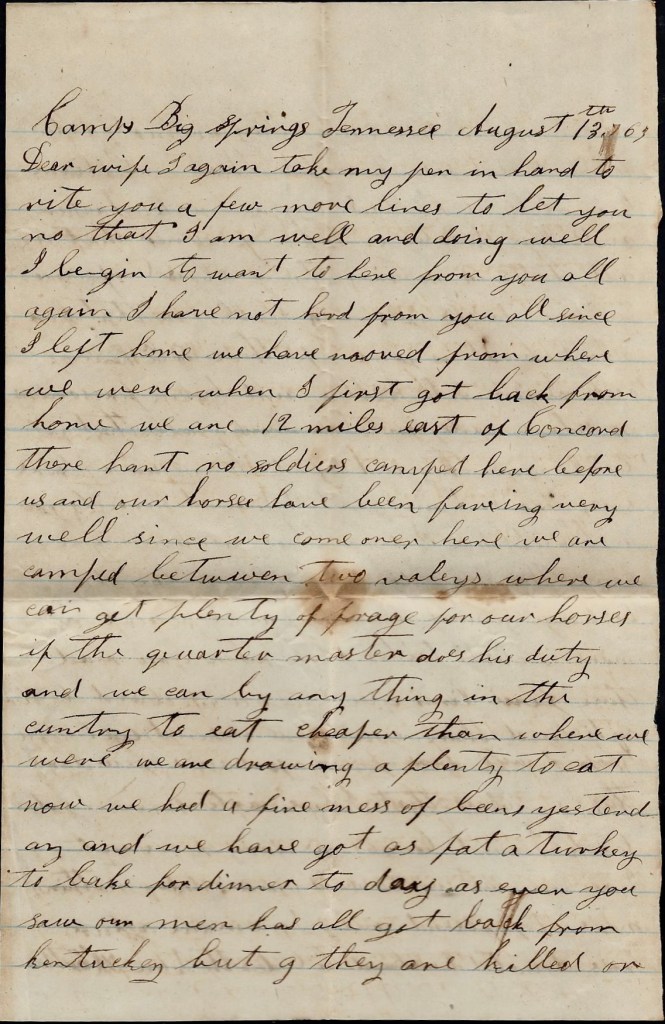 Camp Big Springs Tennessee August 13th /63
Dear wife I again take my pen in hand to
rite you a few more lines to let you
no that I am well and doing well
I begin to want to here from you all
again I have not herd from you all since
I left home we have mooved from where
we were when I first got back from
home we are 12 miles east of Concord
there hant no soldiers camped here before
us and our horses have been fareing very
well since we come over here we are
camped betwiwen two valeys where we
can get plenty of forage for our horses
if the quarter master does his duty
and we can by any thing in the
cuntry to eat cheaper than where we
were we are drawing a plenty to eat
now we had a fine mess of beens yesterd
ay and we have got as fat a turkey
to bake for dinner to day as ever you
saw our men has all got back from
kentuckey but 9 they are killed or